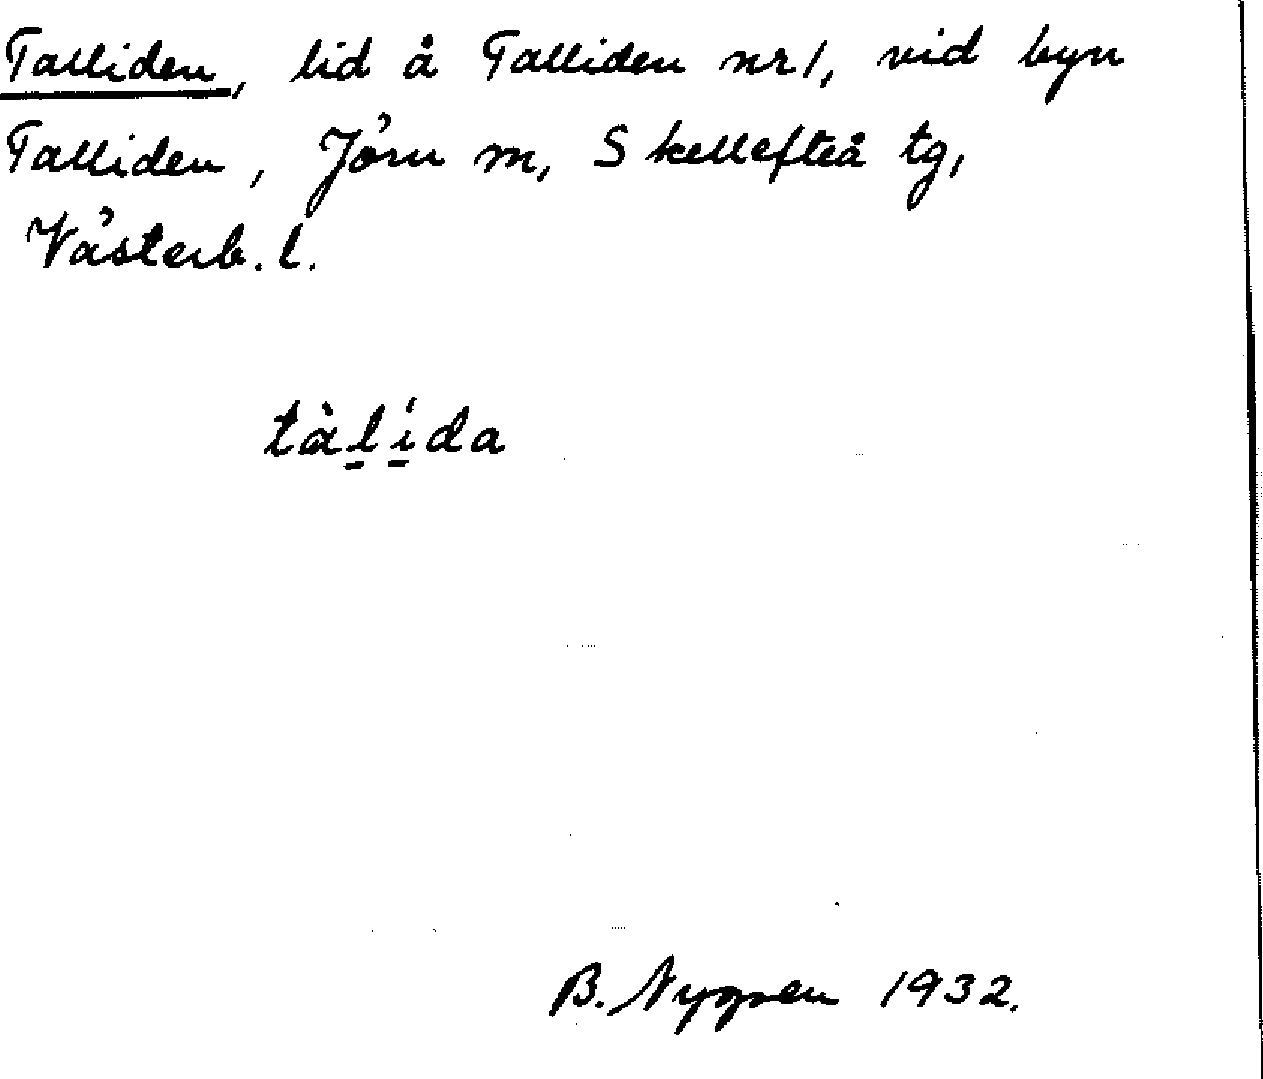 Talliden, lid å Talliden nr 1, vid byn
Talliden, Jörn m, Skellefteå tg,
Västerb. l.
tàl̲í̲da
B. Nygren 1932.